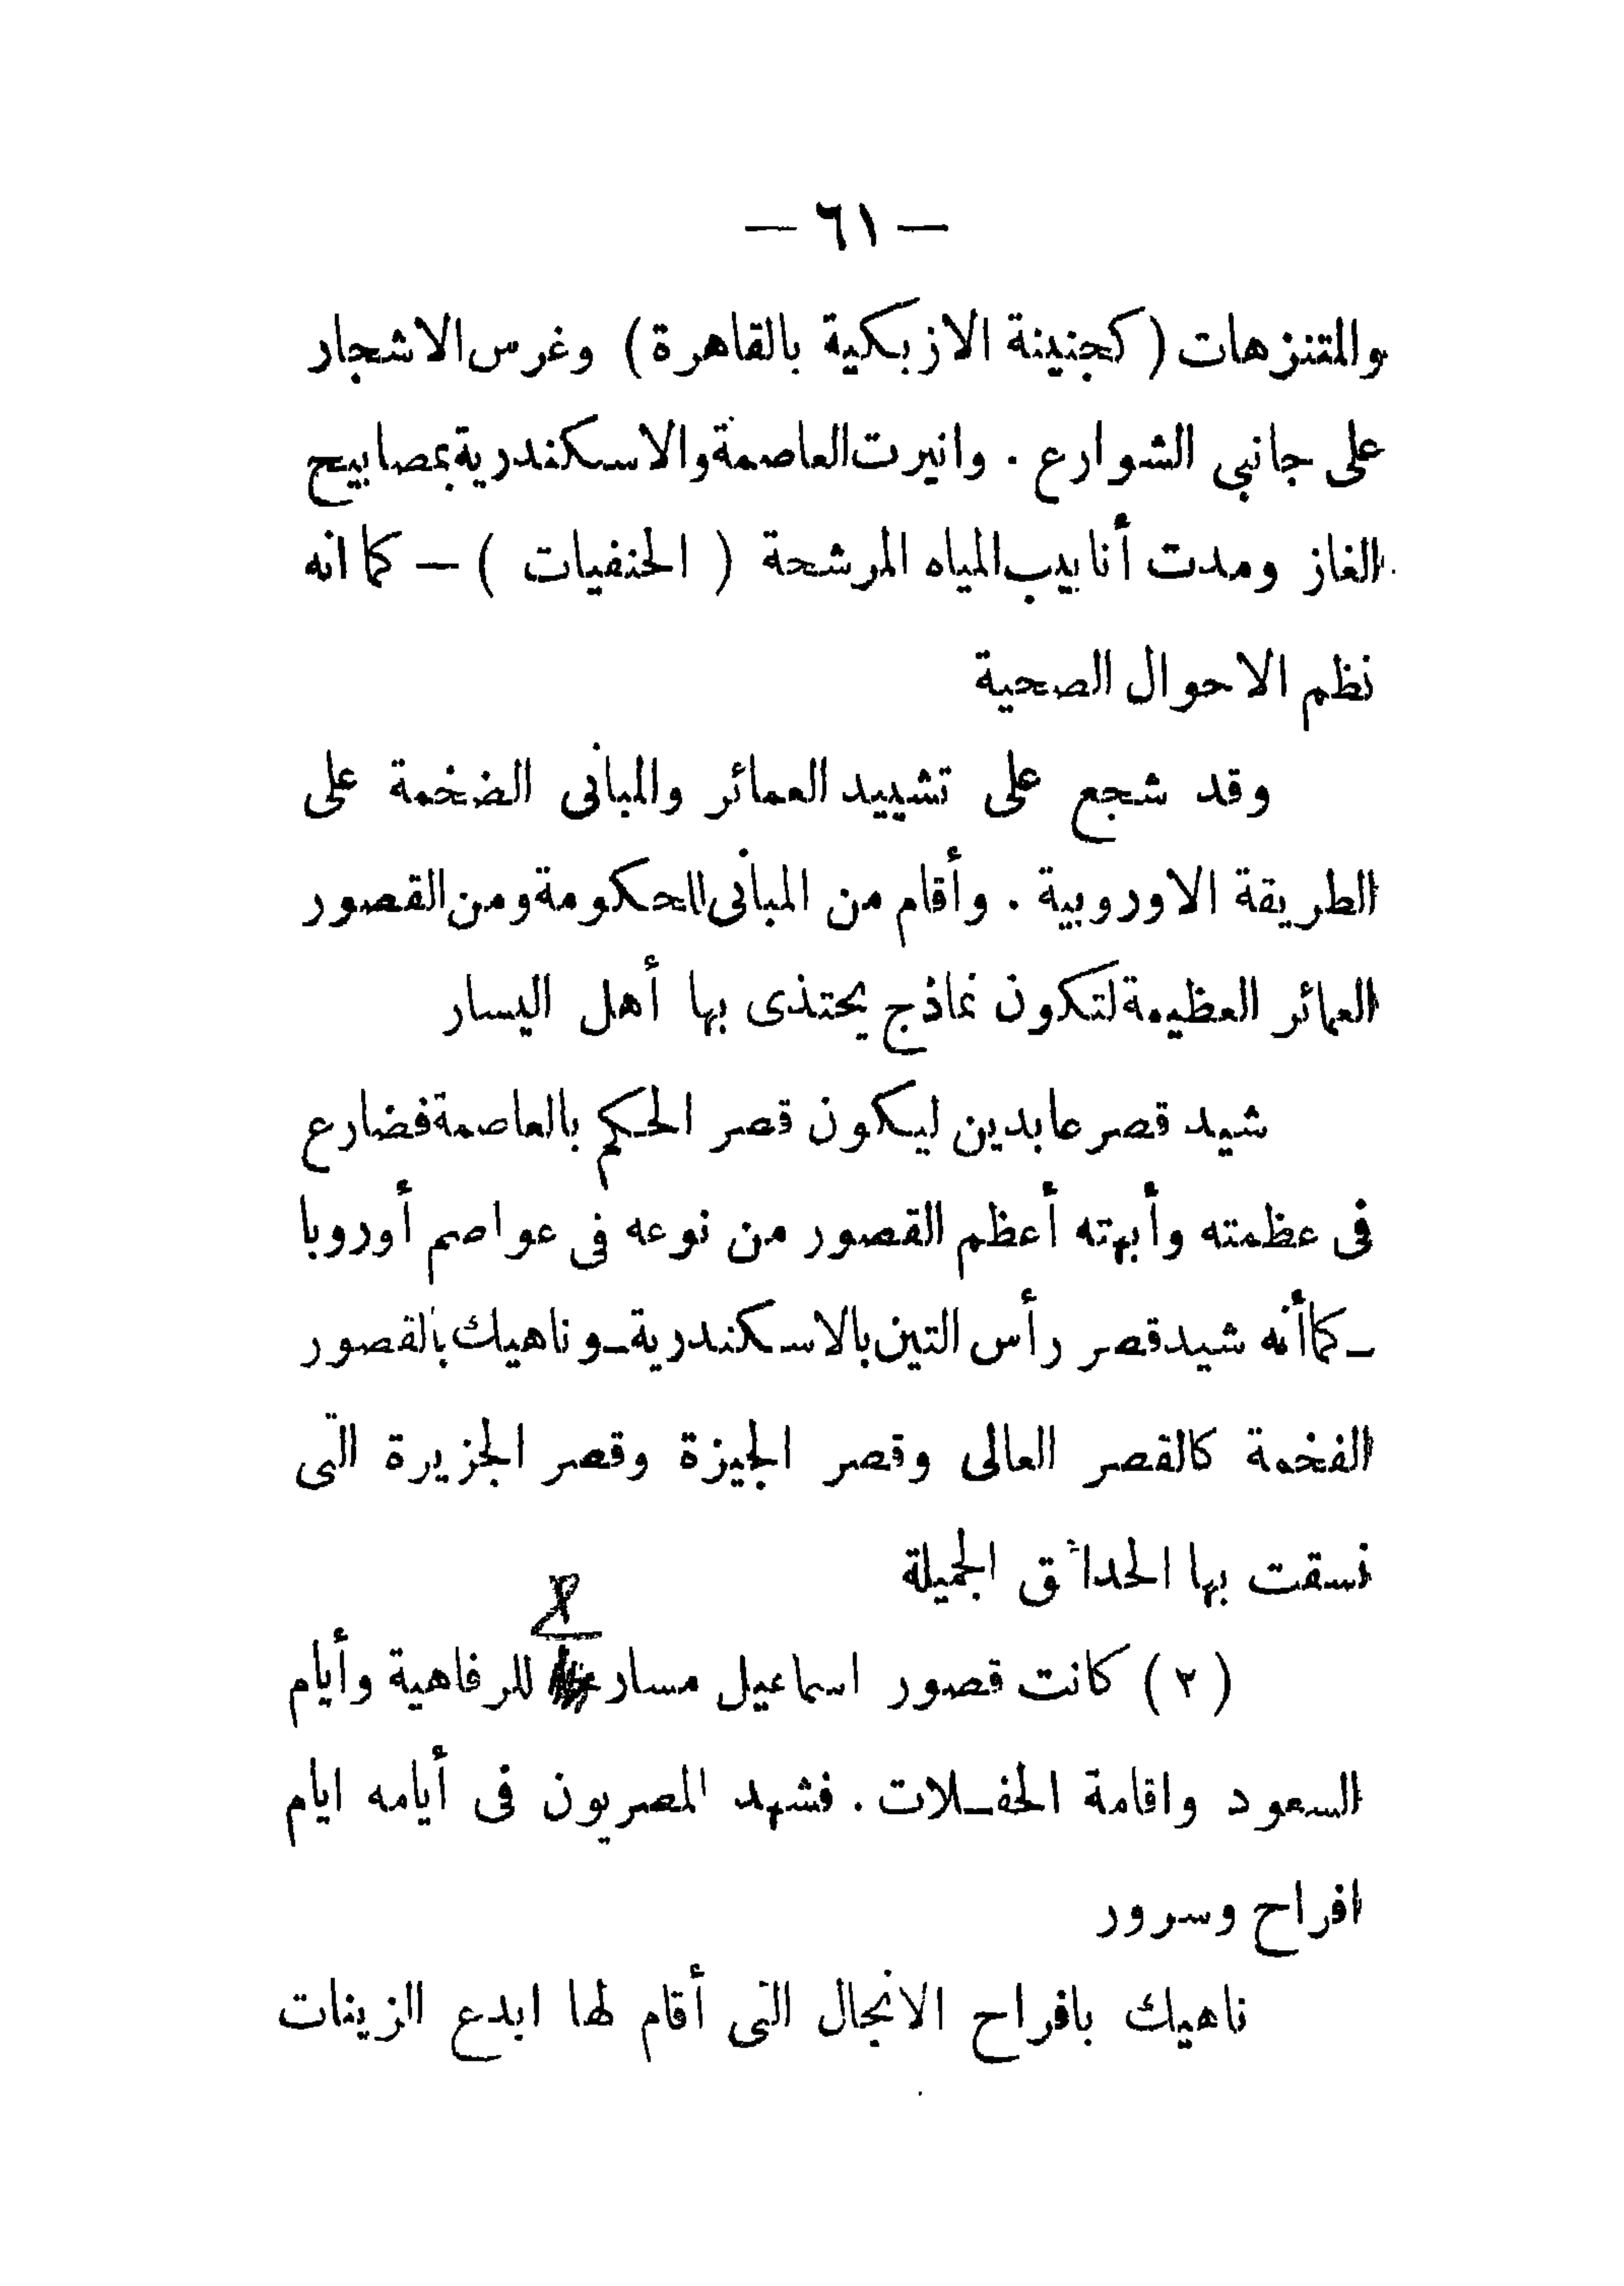 — ٦١ —
والمتنزهات (كجنينة الازبكية بالقاهرة) وغرس الاشجار
على جانبى الشوارع . وانيرت العاصمة والاسكندرية بمصابيح
الغاز ومدت أنابيب المياه المرشحة ( الحنفيات ) — كما انه
نظم الاحوال الصحية
وقد شجع على تشييد العمائر والمبانى الضخمة على
الطريقة الاوروبية . وأقام من المبانى للحكومة ومن القصور
العمائر العظيمة لتكون نماذج يحتذى بها أهل اليسار
شيد قصر عابدين ليكون قصر الحكم بالعاصمة فضارع
فى عظمته وأبهته أعظم القصور من نوعه فى عواصم أوروبا
ـ كما أنه شيد قصر رأس التين بالاسكندرية ـ وناهيك بالقصور
الفخمة كالقصر العالى وقصر الجيزة وقصر الجزيرة التى
نسقت بها الحدائق الجميلة
(٢) كانت قصور اسماعيل للرفاهية وأيام
السعود واقامة الحفـلات . فشهد المصريون فى أيامه ايام
افراح وسرور
ناهيك بافراح الانجال التى أقام لها ابدع الزينات